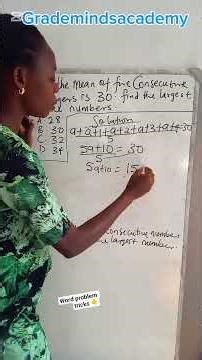 Grademindsacademy
the mean of five Consecutive
gers is 30. find the largest
numbers.
A 28
B 30
C 32
D 34
Solution
a+a+1+a+2+a+3+a+4=30
5a+10 = 30
5
5a+10 = 15
consecutive numbers
largest number
Word problem
tricks 👇